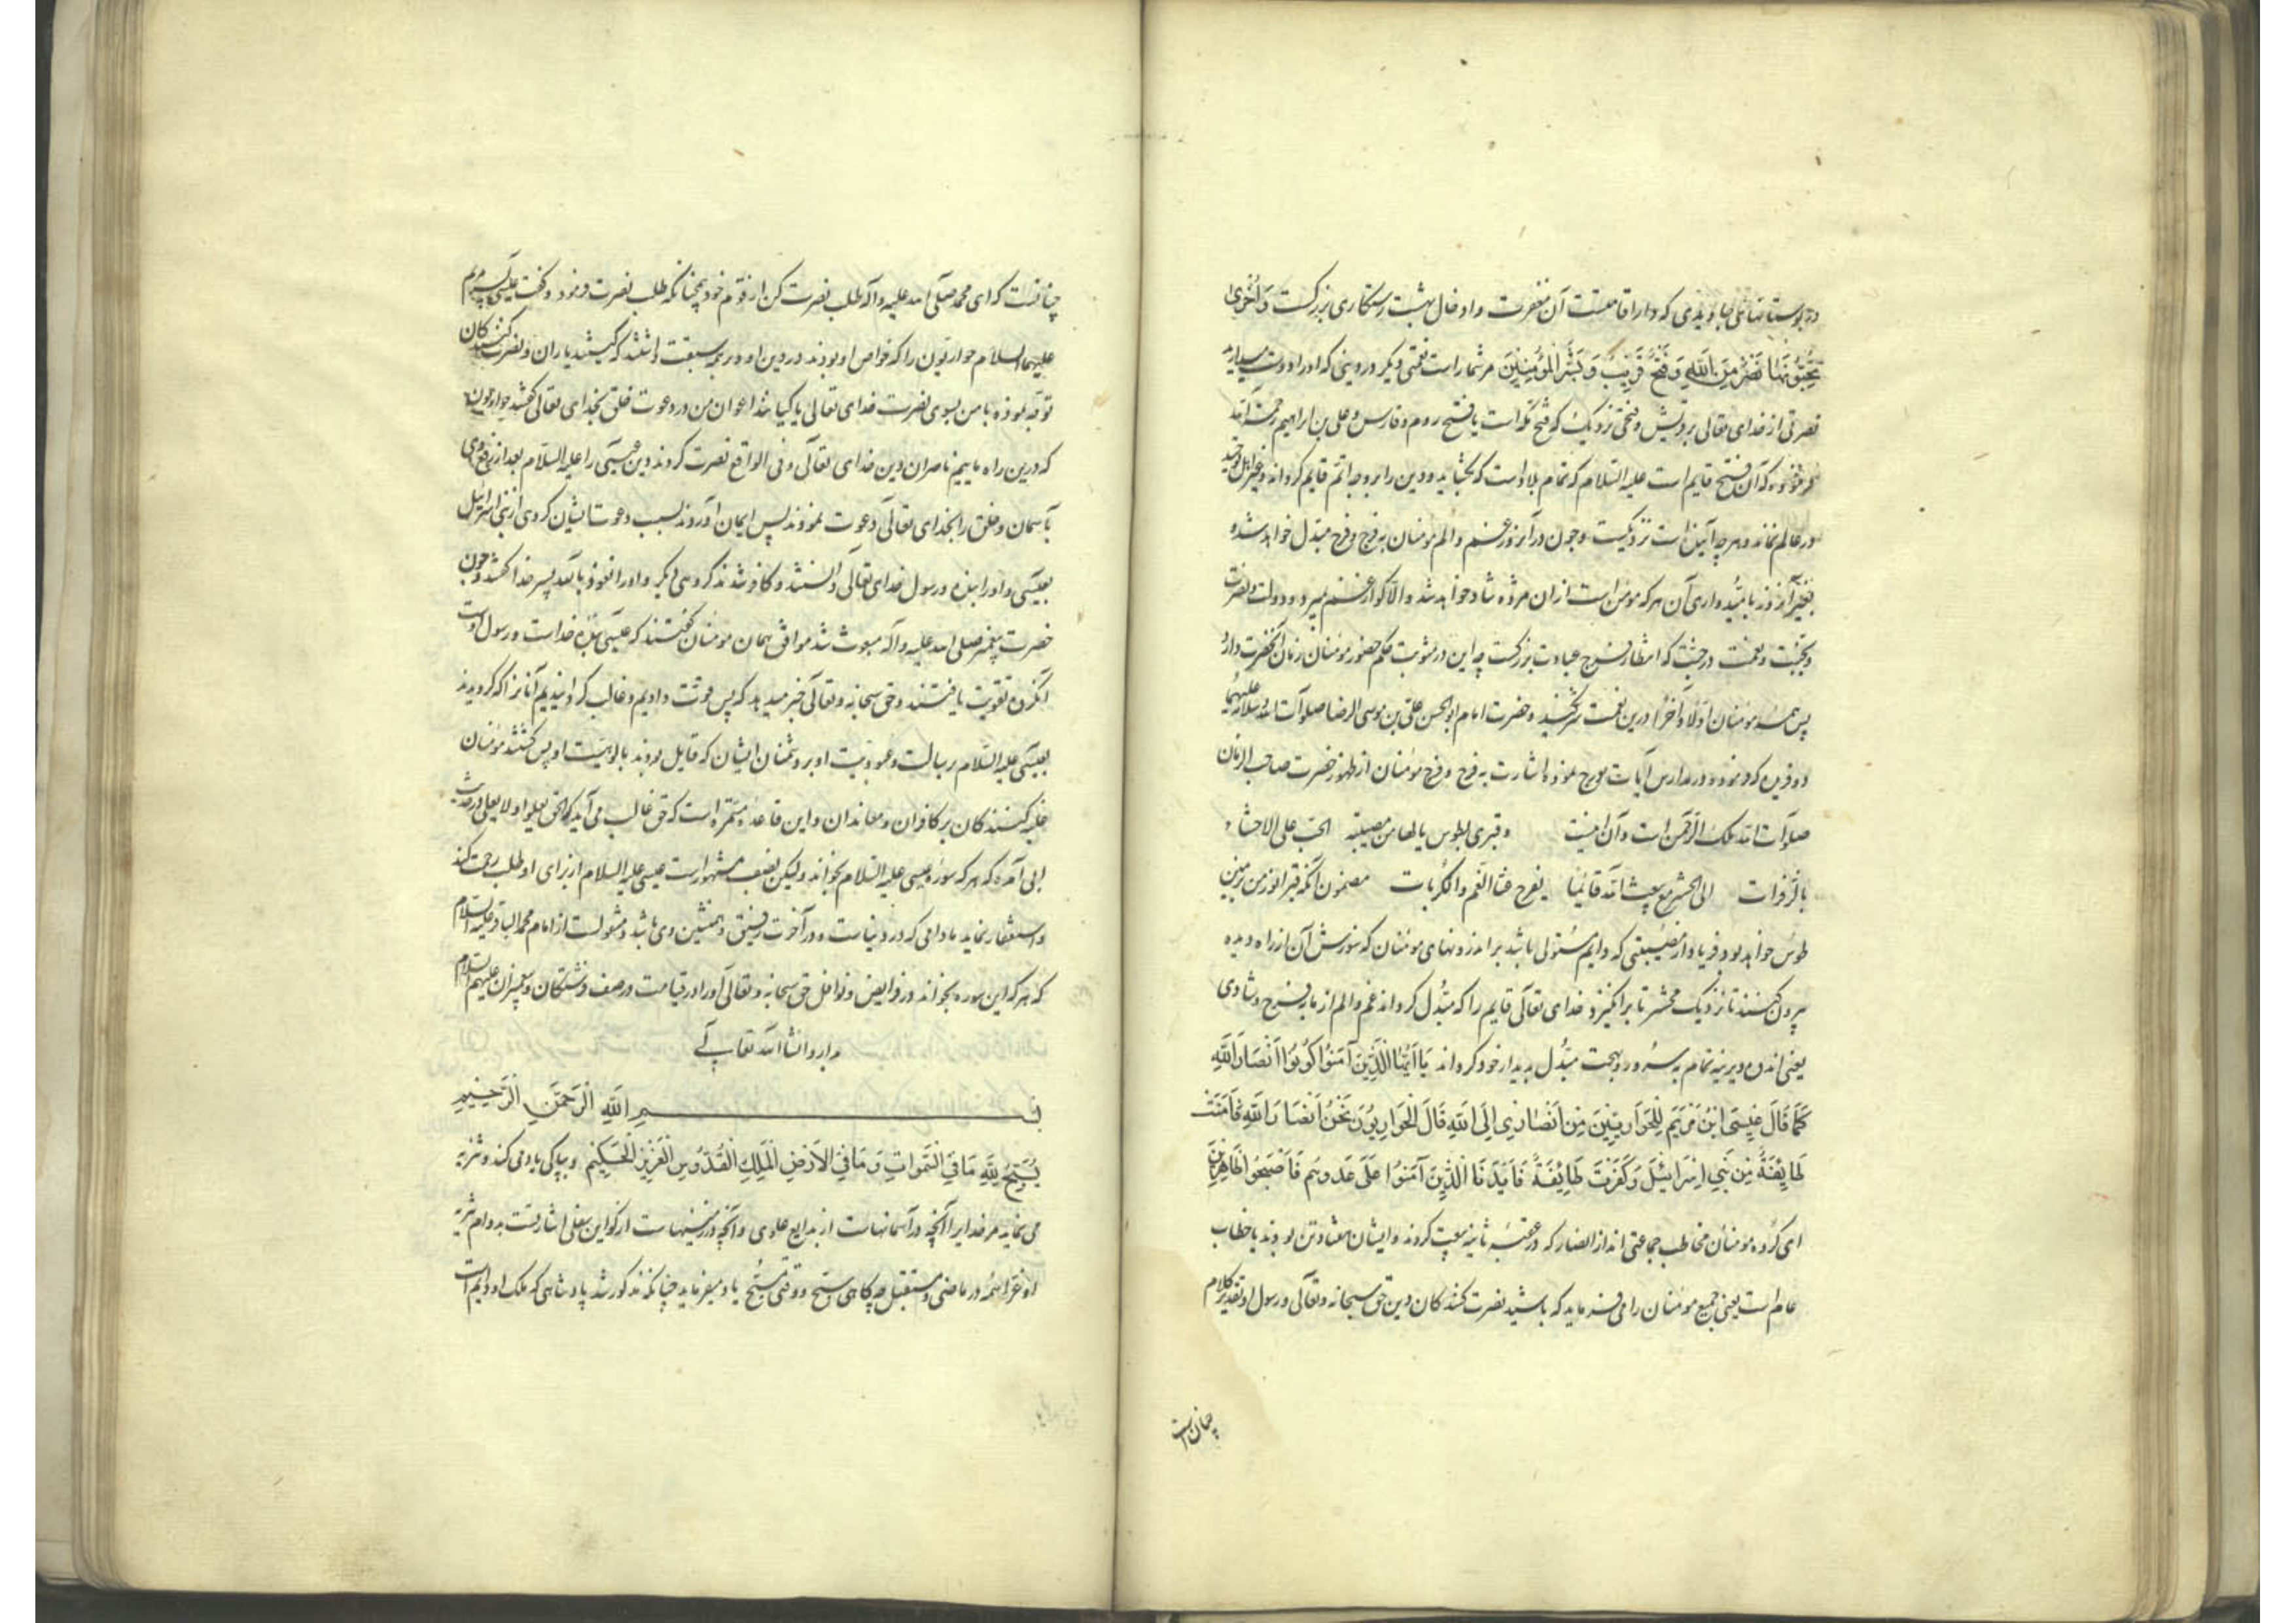 در بوستانهای جاویدی که دار اقامتست آن مغفرت و ادخال بهشت رستکاری بزرکست وَاُخْرَی
تُحِبُّونَهَا نَصْرٌ مِنَ اللَّهِ وَفَتْحٌ قَرِیبٌ وَبَشِّرِ الْمُؤْمِنِینَ مر شما راست نعمتی دیکر در دینی که او را دوست میدارید
نصرتی از خدای تعالی بر قریش و فتحی نزدیک که فتح مکه است یا فتح روم و فارس و علی بن ابراهیم رحمت الله
فرموده که آن فتح قایم است علیه السلام که تمام بلاد است که بکشاید و دین را بر وجه اتم قایم کرداند و غیر اهل توحید
در عالم نماند و هر چه آینده است نزدیکست و چون در آنروز غم و الم مؤمنان به فرج و فرح مبدل خواهد شد
بغیر آنروز بامیدواری آن هر که مومن است از ان مژده شاد خواهد شد والا کو از غم بمیرد و دولت و نصرت
و بهجت و نعمت در جنت که انتظار فرج عبادت بزرکست چه این در مثوبت حکم حضور مؤمنان زمان آنحضرت دارد
پس همه مؤمنان اولا و آخرا درین نعمت شریکند و حضرت امام ابو الحسن علی بن موسی الرضا صلوات الله و سلامه علیهما
دو فرد که فرموده و در مدارس آیات مدرج نموده اشارت به فرج و فرح مؤمنان از ظهور حضرت صاحب الزمان
صلوات الله ملک الرحمن است و آن اینست وقبری بطوس یا لها من مصیبة الحت علی الاحشاء
بالزفرات الی الحشر حتی یبعث الله قائما یفرج عنا الغم والکربات مضمون آنکه قبر انور من بزمین
طوس خواهد بود و فریاد از مصیبتی که دایم مستولی باشد بر اندرونهای مومنان که سوزش آن از راه دیده
بیرون کنند تا نزدیک محشر تا برانکیزد خدای تعالی قایم را که مبدل کرداند غم و الم از ما به فرح و شادی
یعنی اندوه دیرینه تمام به سرور و بهجت مبدل بدیدار خود کرداند یَا اَیُّهَا الَّذِینَ آمَنُوا کُونُوا اَنْصَارَ اللَّهِ
کَمَا قَالَ عِیسَی ابْنُ مَرْیَمَ لِلْحَوَارِیِّینَ مِنْ اَنْصَارِی اِلَی اللَّهِ قَالَ الْحَوَارِیُّونَ نَحْنُ اَنْصَارُ اللَّهِ فَآمَنَتْ
طَائِفَةٌ مِنْ بَنِی اِسْرَائِیلَ وَکَفَرَتْ طَائِفَةٌ فَاَیَّدْنَا الَّذِینَ آمَنُوا عَلَی عَدُوِّهِمْ فَاَصْبَحُوا ظَاهِرِینَ
ای کروه مومنان مخاطب جماعتی اند از انصار که در عقبه ثانیه بیعت کردند و ایشان هفتاد تن بودند یا خطاب
عام است یعنی جمیع مومنان را می فرماید که باشید نصرت کنندکان دین حق سبحانه و تعالی و رسول او تقدیر کلام
چنان است
چنانست که ای محمد صلی الله علیه و آله طلب نصرت کن از قوم خود همچنانکه طلب نصرت فرمود و کفت عیسی پسر مریم
علیهما السلام حواریون را که خواص او بودند و در دین او بر همه سبقت داشتند که کیستید یاران و نصرت کنندکان
توجه نموده با من بسوی نصرت خدای تعالی یا کیانند اعوان من در دعوت خلق بخدای تعالی کفتند حواریون
که درین راه ماییم ناصران دین خدای تعالی و فی الواقع نصرت کردند دین عیسی را علیه السلام بعد از رفع وی
بآسمان و خلق را بخدای تعالی دعوت نمودند پس ایمان آوردند بسبب دعوت ایشان کروهی از بنی اسرائیل
بعیسی و او را بنده و رسول خدای تعالی دانستند و کافر شدند کروهی دیکر و او را نعوذ بالله پسر خدا کفتند و چون
حضرت پیغمبر صلی الله علیه و آله مبعوث شد موافق همان مومنان کفتند که عیسی بنده خداست و رسول اوست
آنکروه تقویت یافتند و حق سبحانه و تعالی خبر میدهد که پس قوت دادیم و غالب کردانیدیم آنانرا که کرویدند
بعیسی علیه السلام برسالت و عبودیت او بر دشمنان ایشان که قایل بودند بالوهیت او پس کشتند مومنان
غلبه کنندکان بر کافران و معاندان و این قاعده مستمره است که حق غالب می آید که الحق یعلو و لا یعلی در حدیث
ابی آمده که هر که سوره عیسی علیه السلام بخواند ولیکن بضعف مشهور است عیسی علیه السلام از برای او طلب رحمت کند
و استغفار نماید مادامی که در دنیاست و در آخرت رفیق و همنشین وی باشد و منقولست از امام محمد الباقر علیه السلام
که هر که این سوره بخواند در فرایض و نوافل حق سبحانه و تعالی او را در قیامت در صف فرشتکان و پیغمبران علیهم السلام
بدارد انشاالله تعالی
بسم اللهِ الرَّحْمَنِ الرَّحِیمِ
یُسَبِّحُ لِلَّهِ مَا فِی السَّمَوَاتِ وَمَا فِی الْاَرْضِ الْمَلِکِ الْقُدُّوسِ الْعَزِیزِ الْحَکِیمِ و بپاکی یاد می کند و تنزیه
می نماید مر خدایرا آنچه در آسمانهاست از بدایع علوی و آنچه در زمینهاست از کواین سفلی اشارتست بدوام تنزیه
او عز اسمه در ماضی و مستقبل چه کاهی سبح و وقتی یسبح یاد میفرماید چنانکه مذکور شد پادشاهی که ملک او دایم است